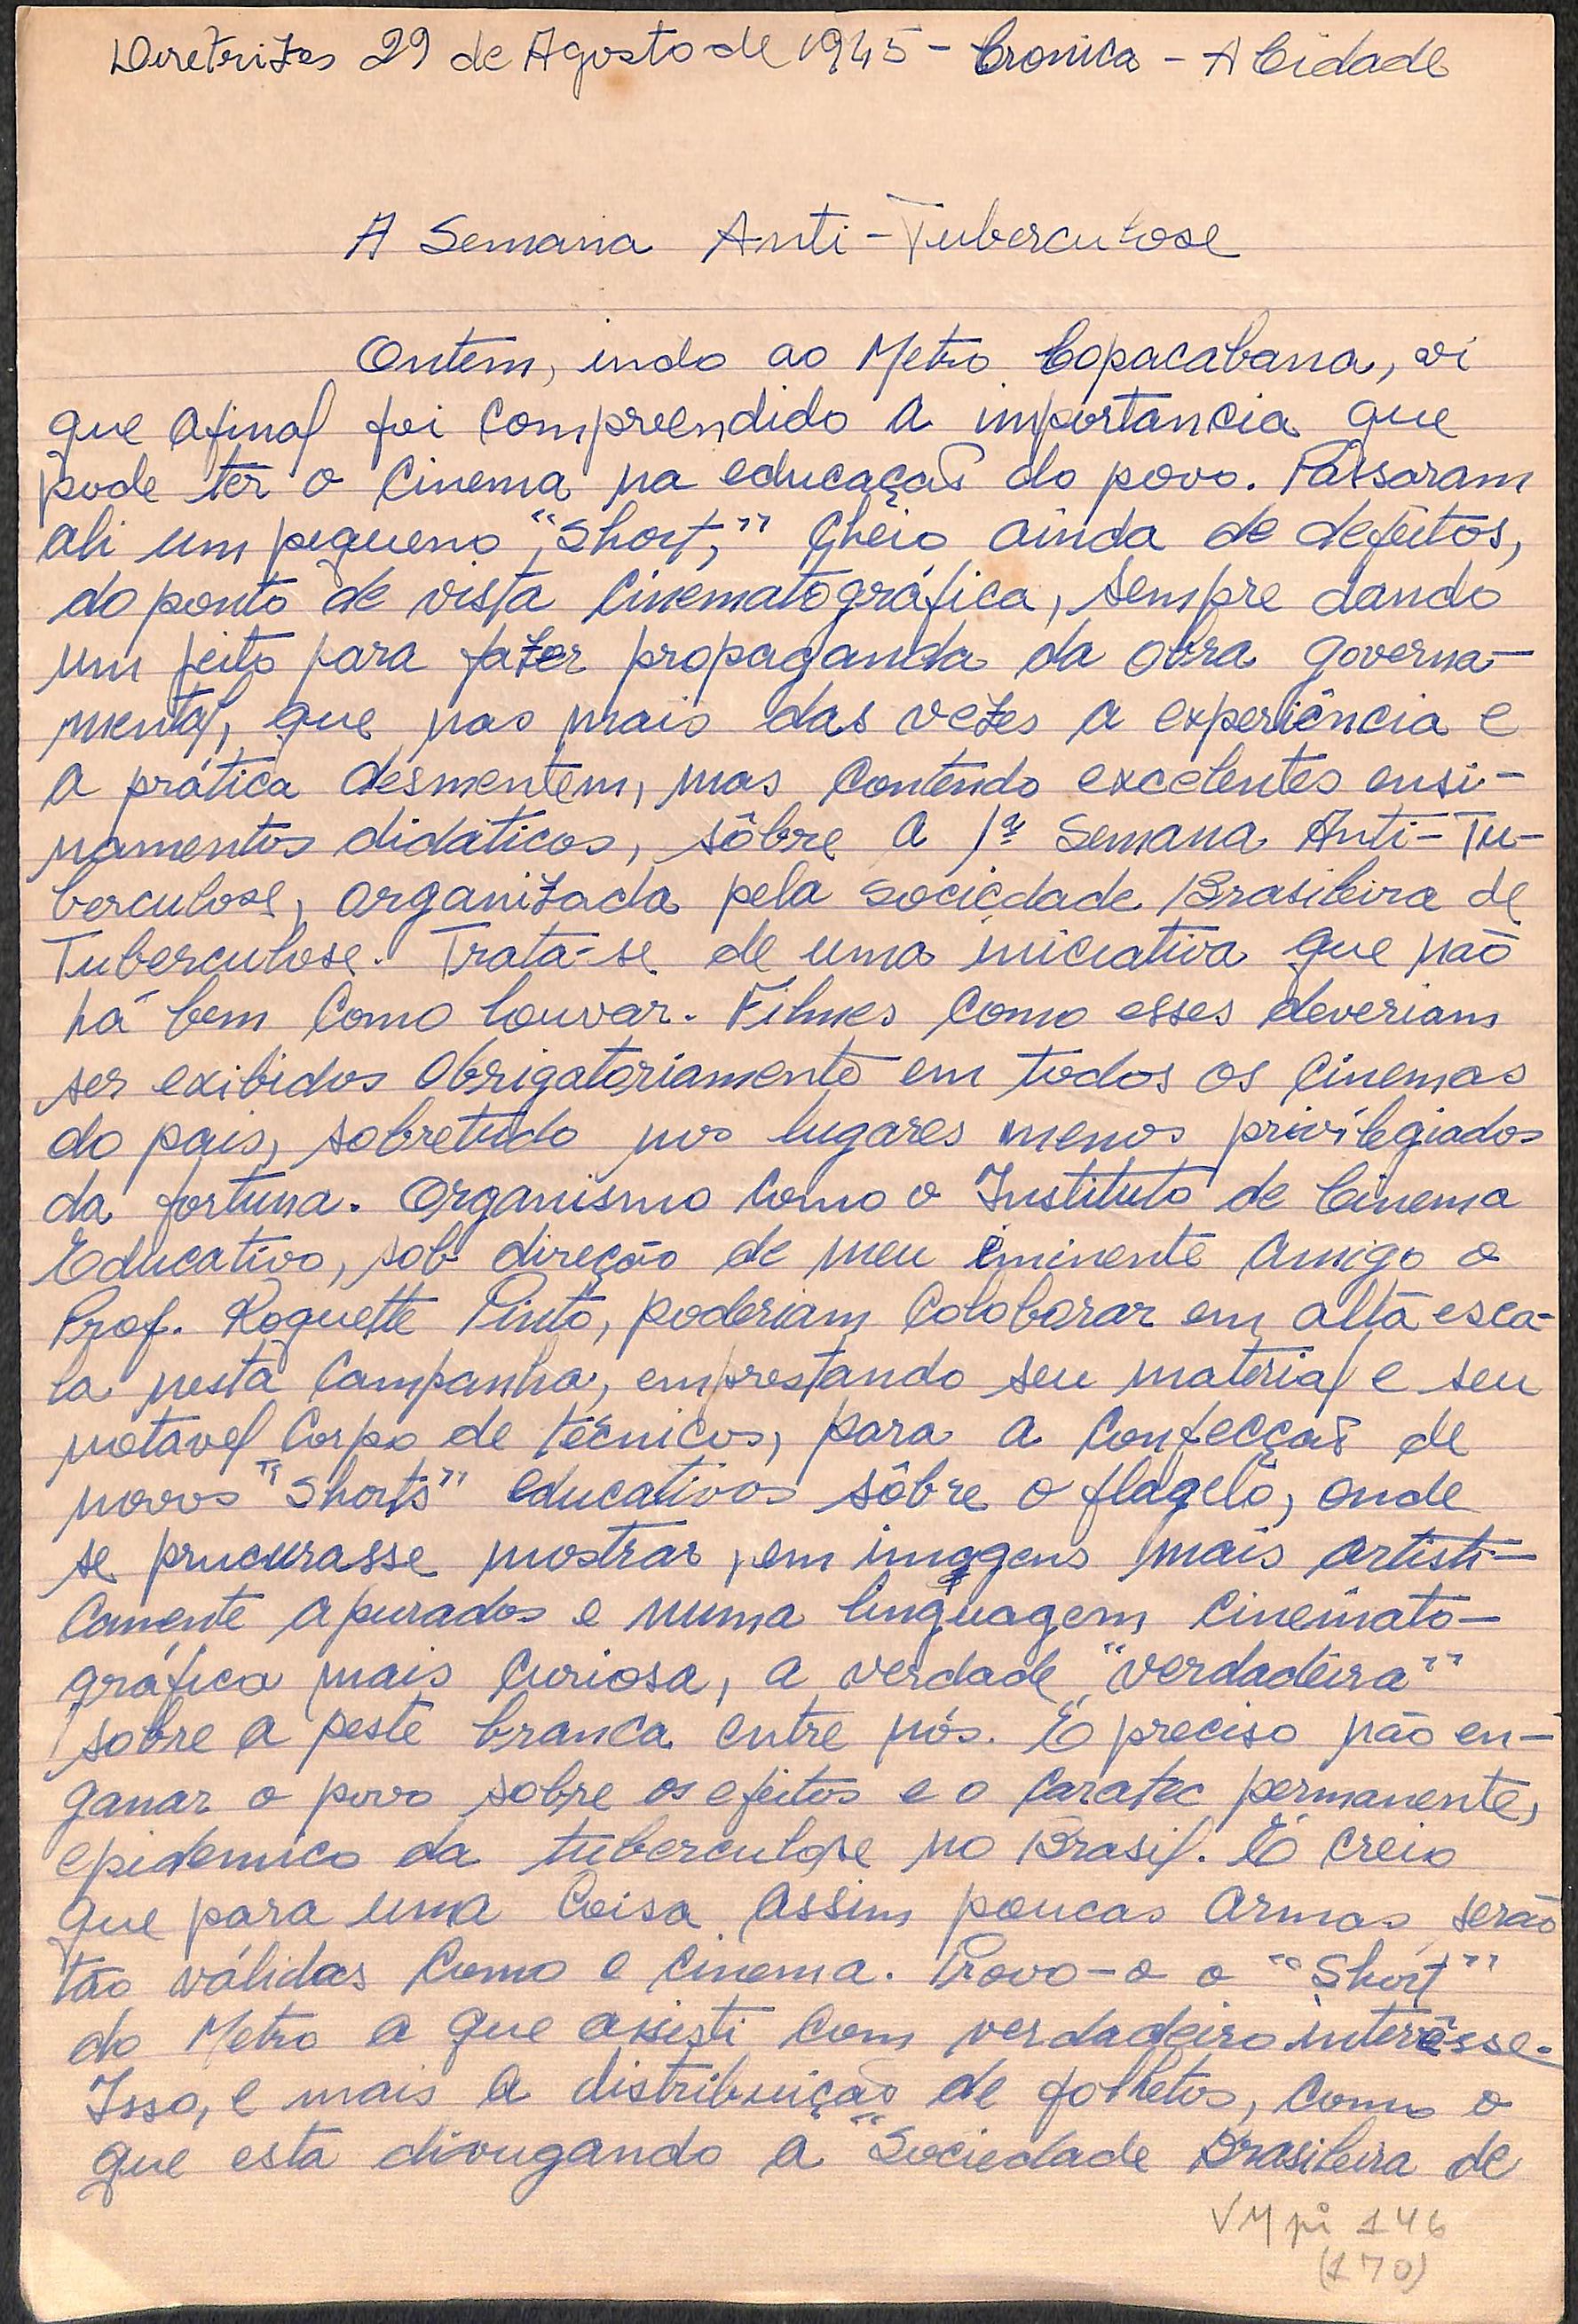 Diretrizes 29 de Agosto de 1945 - Cronica - A Cidade
A Semana Anti-Tuberculose
Ontem, indo ao Metro Copacabana, vi
que afinal foi compreendido a importancia que
pode ter o cinema na educação do povo. Passaram
ali um pequeno "short," cheio ainda de defeitos,
do ponto de vista cinematográfica, sempre dando
um jeito para fazer propaganda da obra governa-
mental, que nas mais das vezes a experiência e
a prática desmentem, mas contendo excelentes ensi-
namentos didáticos, sôbre a 1ª Semana Anti-Tu-
berculose, organizada pela Sociedade Brasileira de
Tuberculose. Trata-se de uma iniciativa que não
há bem como louvar. Filmes como esses deveriam
ser exibidos obrigatoriamente em todos os cinemas
do pais, sobretudo nos lugares menos privilegiados
da fortuna. Organismo como o Instituto de Cinema
Educativo, sob direção de meu eminente amigo o
Prof. Roquette Pinto, poderiam coloborar em alta esca-
la nesta campanha, emprestando seu material e seu
notavel corpo de técnicos, para a confecção de
novos "shorts" educativos sôbre o flagelo, onde
se prucurasse mostrar, em imagens mais artisti-
camente apurados e numa linguagem cinemato-
gráfica mais curiosa, a verdade "verdadeira"
sobre a peste branca entre nós. É preciso não en-
ganar o povo sobre os efeitos e o caratec permanente,
epidemico da tuberculose no Brasil. É creio
que para uma coisa assim poucas armas serão
tão válidas como o cinema. Provo-o o "Short"
do Metro a que assisti com verdadeiro interêsse.
Isso, e mais a distribuição de folhetos, como o
que esta divugando a "Sociedade Brasileira de
VM pi 146
(170)